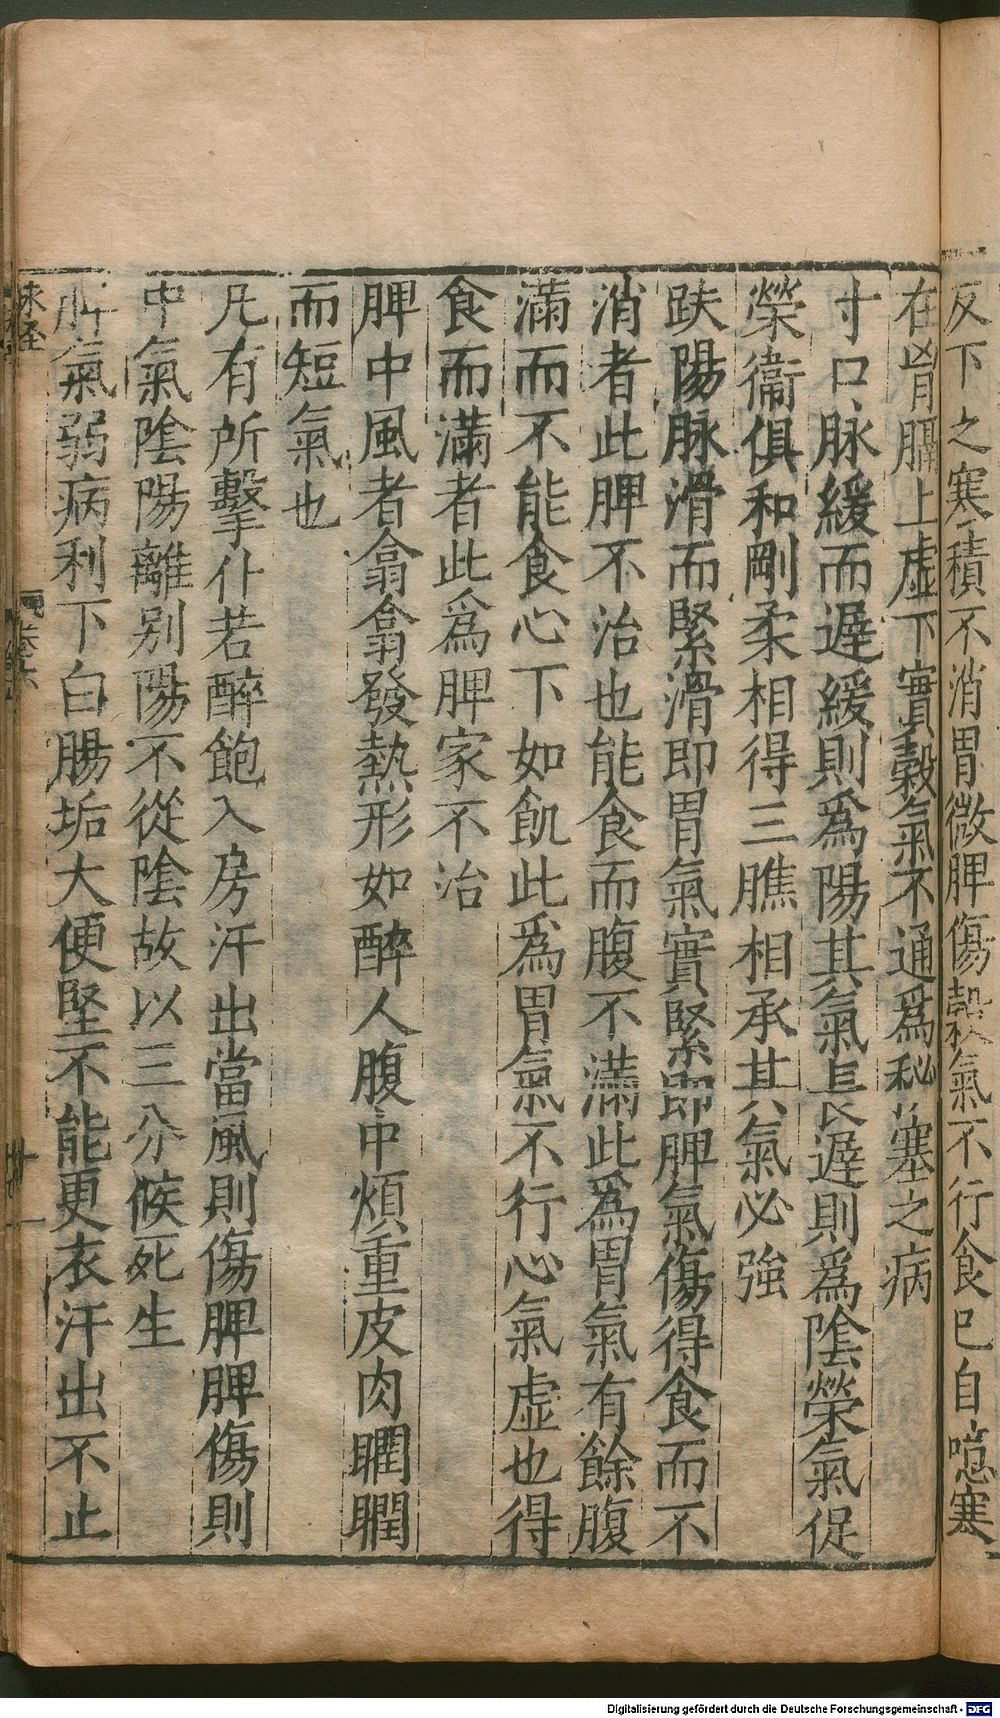 反下之寒積不消胃微脾傷穀氣不行食已自噫寒
在胷膈上虛下實穀氣不通爲秘塞之病
寸口脉緩而遲緩則爲陽其氣長遲則爲陰榮氣促
榮衞俱和剛柔相得三膲相承其氣必強
趺陽脉滑而緊滑即胃氣實緊即脾氣傷得食而不
消者此脾不治也能食而腹不滿此爲胃氣有餘腹
滿而不能食心下如飢此爲胃氣不行心氣虛也得
食而滿者此爲脾家不治
脾中風者翕翕發熱形如醉人腹中煩重皮肉瞤瞤
而短氣也
凡有所擊仆若醉飽入房汗出當風則傷脾脾傷則
中氣陰陽離别陽不從陰故以三分候死生
脾氣弱病利下白腸垢大便堅不能更衣汗出不止
脉經
卷六
Digitalisierung gefördert durch die Deutsche Forschungsgemeinschaft - DFG